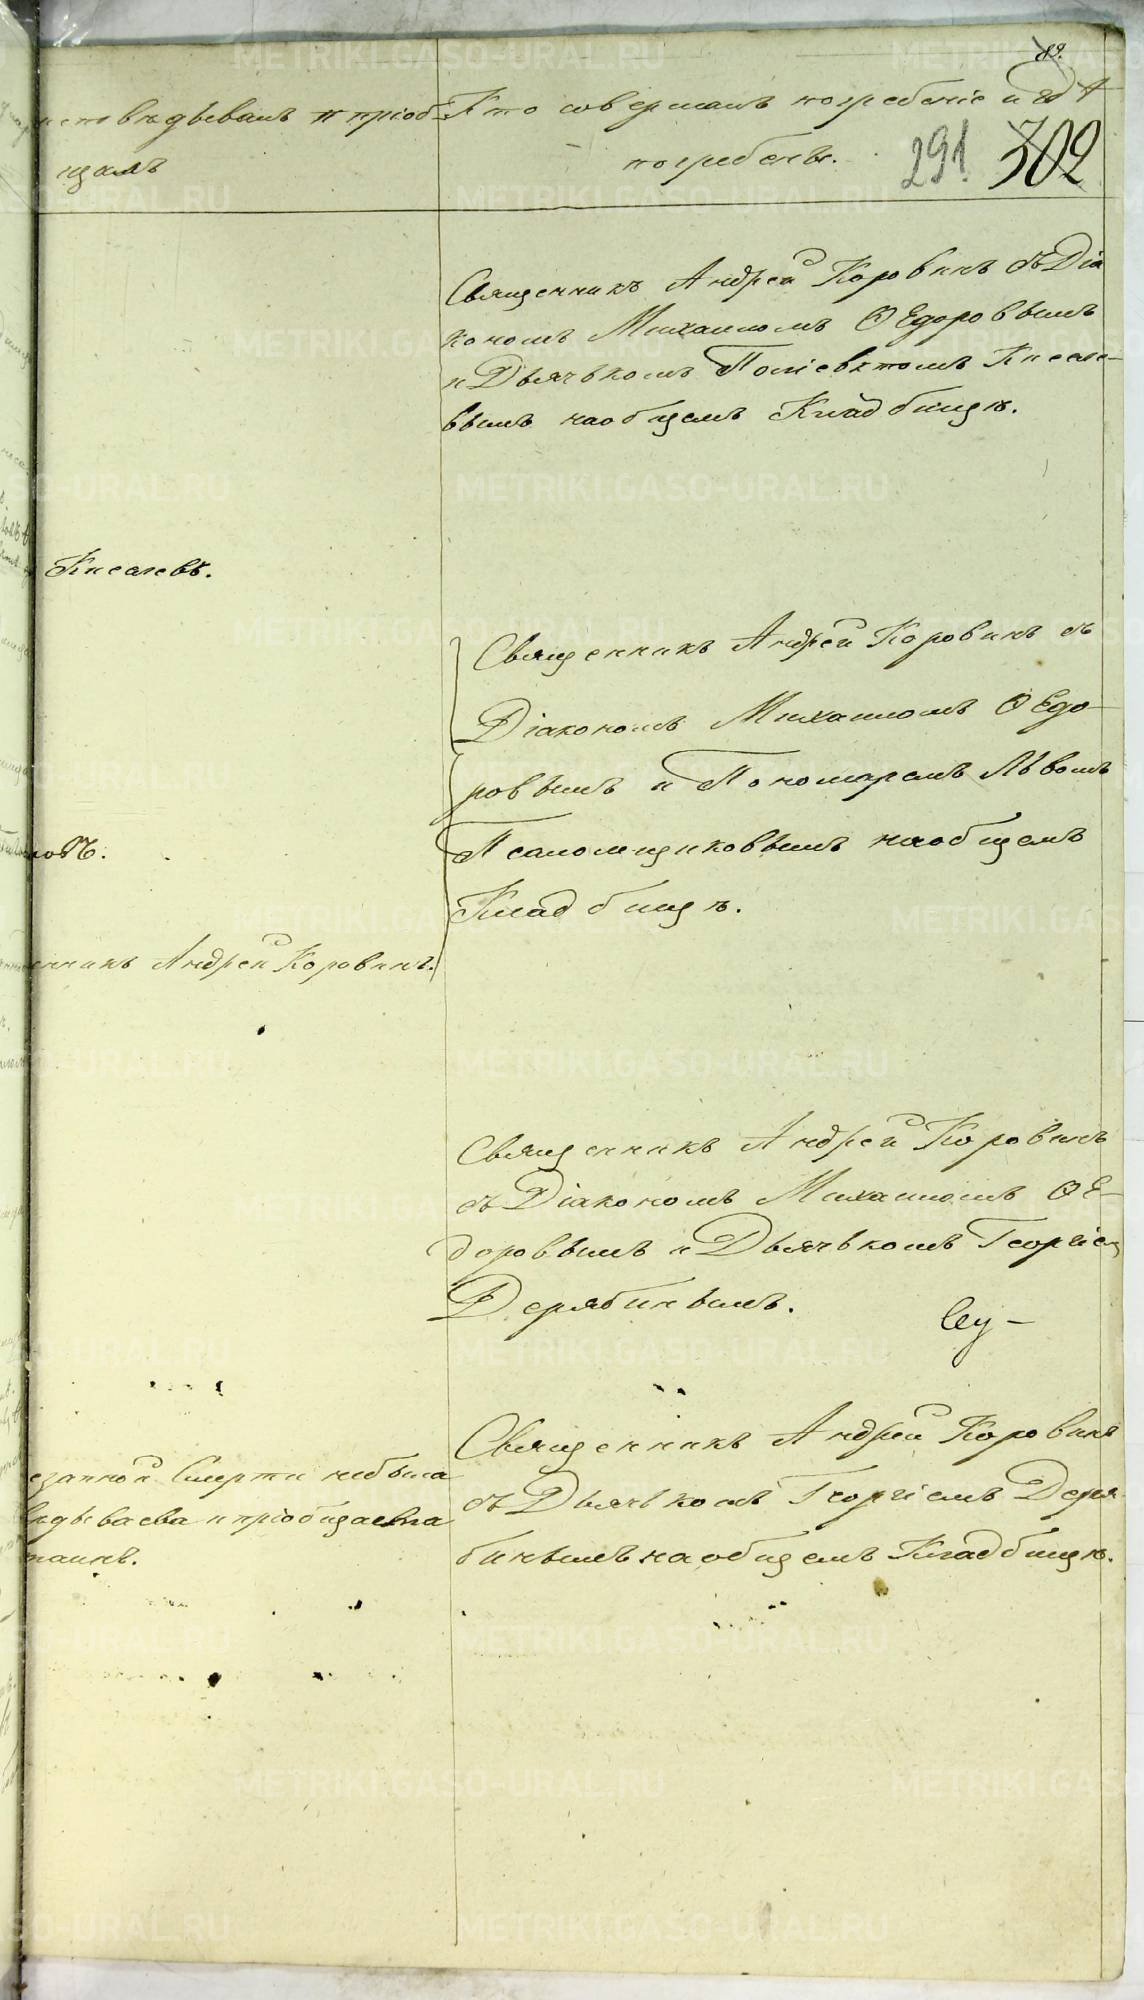 89.
исповѣдывалъ и пріоб-
щалъ
Кто совершалъ погребеніе и гдѣ
погребены.
291 302
Священникъ Андрей Коровинъ съ Діа
кономъ Михаиломъ Ѳедоровымъ
и Дьячькомъ Поліевктомъ Киселе-
вымъ на общемъ Кладбищѣ.
Киселевъ.
Священникъ Андрей Коровинъ съ
Діакономъ Михаиломъ Ѳедо-
ровымъ и Пономаремъ Львомъ
Псаломщиковымъ на общемъ
Кладбищѣ.
новъ.
енникъ Андрей Коровинъ.
Священникъ Андрей Коровинъ
съ Діакономъ Михаиломъ Ѳе-
доровымъ и Дьячькомъ Георгіем
Дерябинымъ.
Священникъ Андрей Коровинъ
съ Дьячькомъ Георгіемъ Деря
бинымъ на общемъ Кладбищѣ.
езапной Смерти небыла
вѣдываема и пріобщаема
таинъ.
METRIKI.GASO-URAL.RU